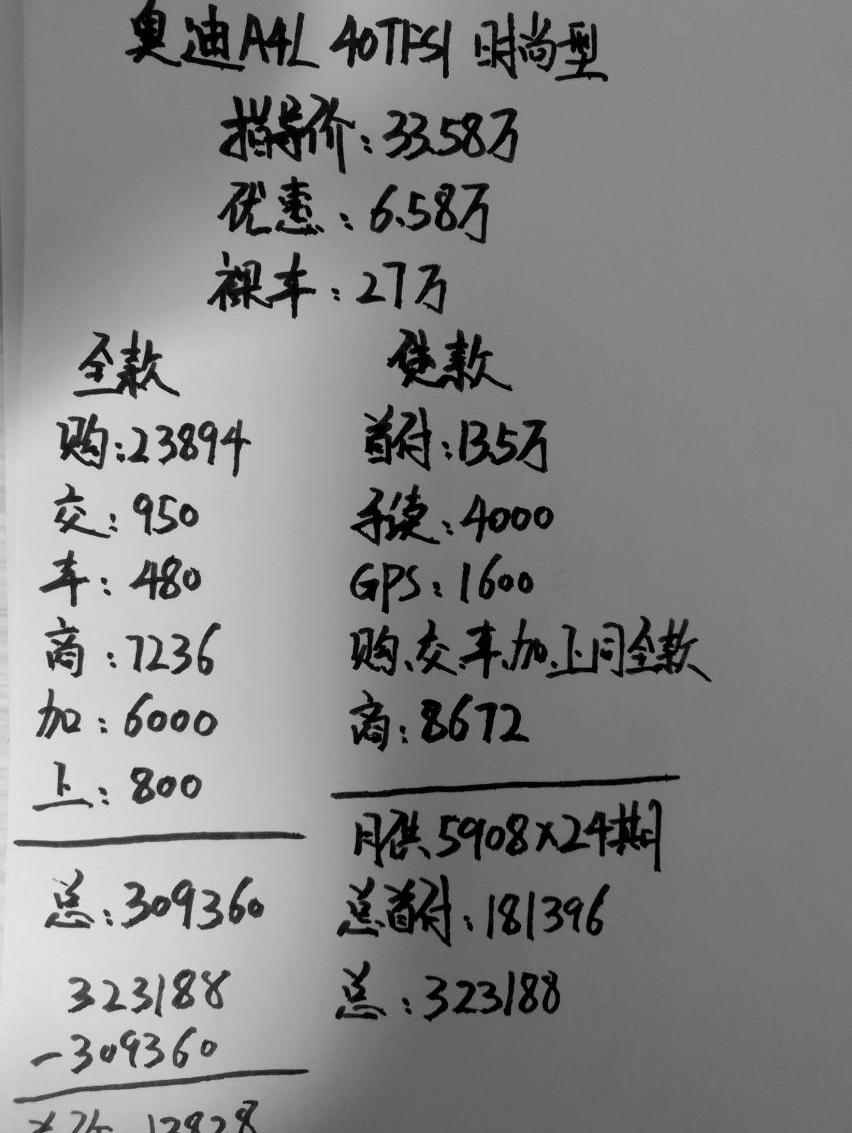 奥迪A4L 40TFSI 时尚型
指导价:33.58万
优惠:6.58万
裸车:27万
全款
购:23894
交:950
车:480
商:7236
加:6000
上:800
总:309360
323188
-309360
12828
贷款
首付:13.5万
手续:4000
GPS:1600
购、交、车、加、上同全款
商:8672
月供5908×24期
总首付:181396
总:323188